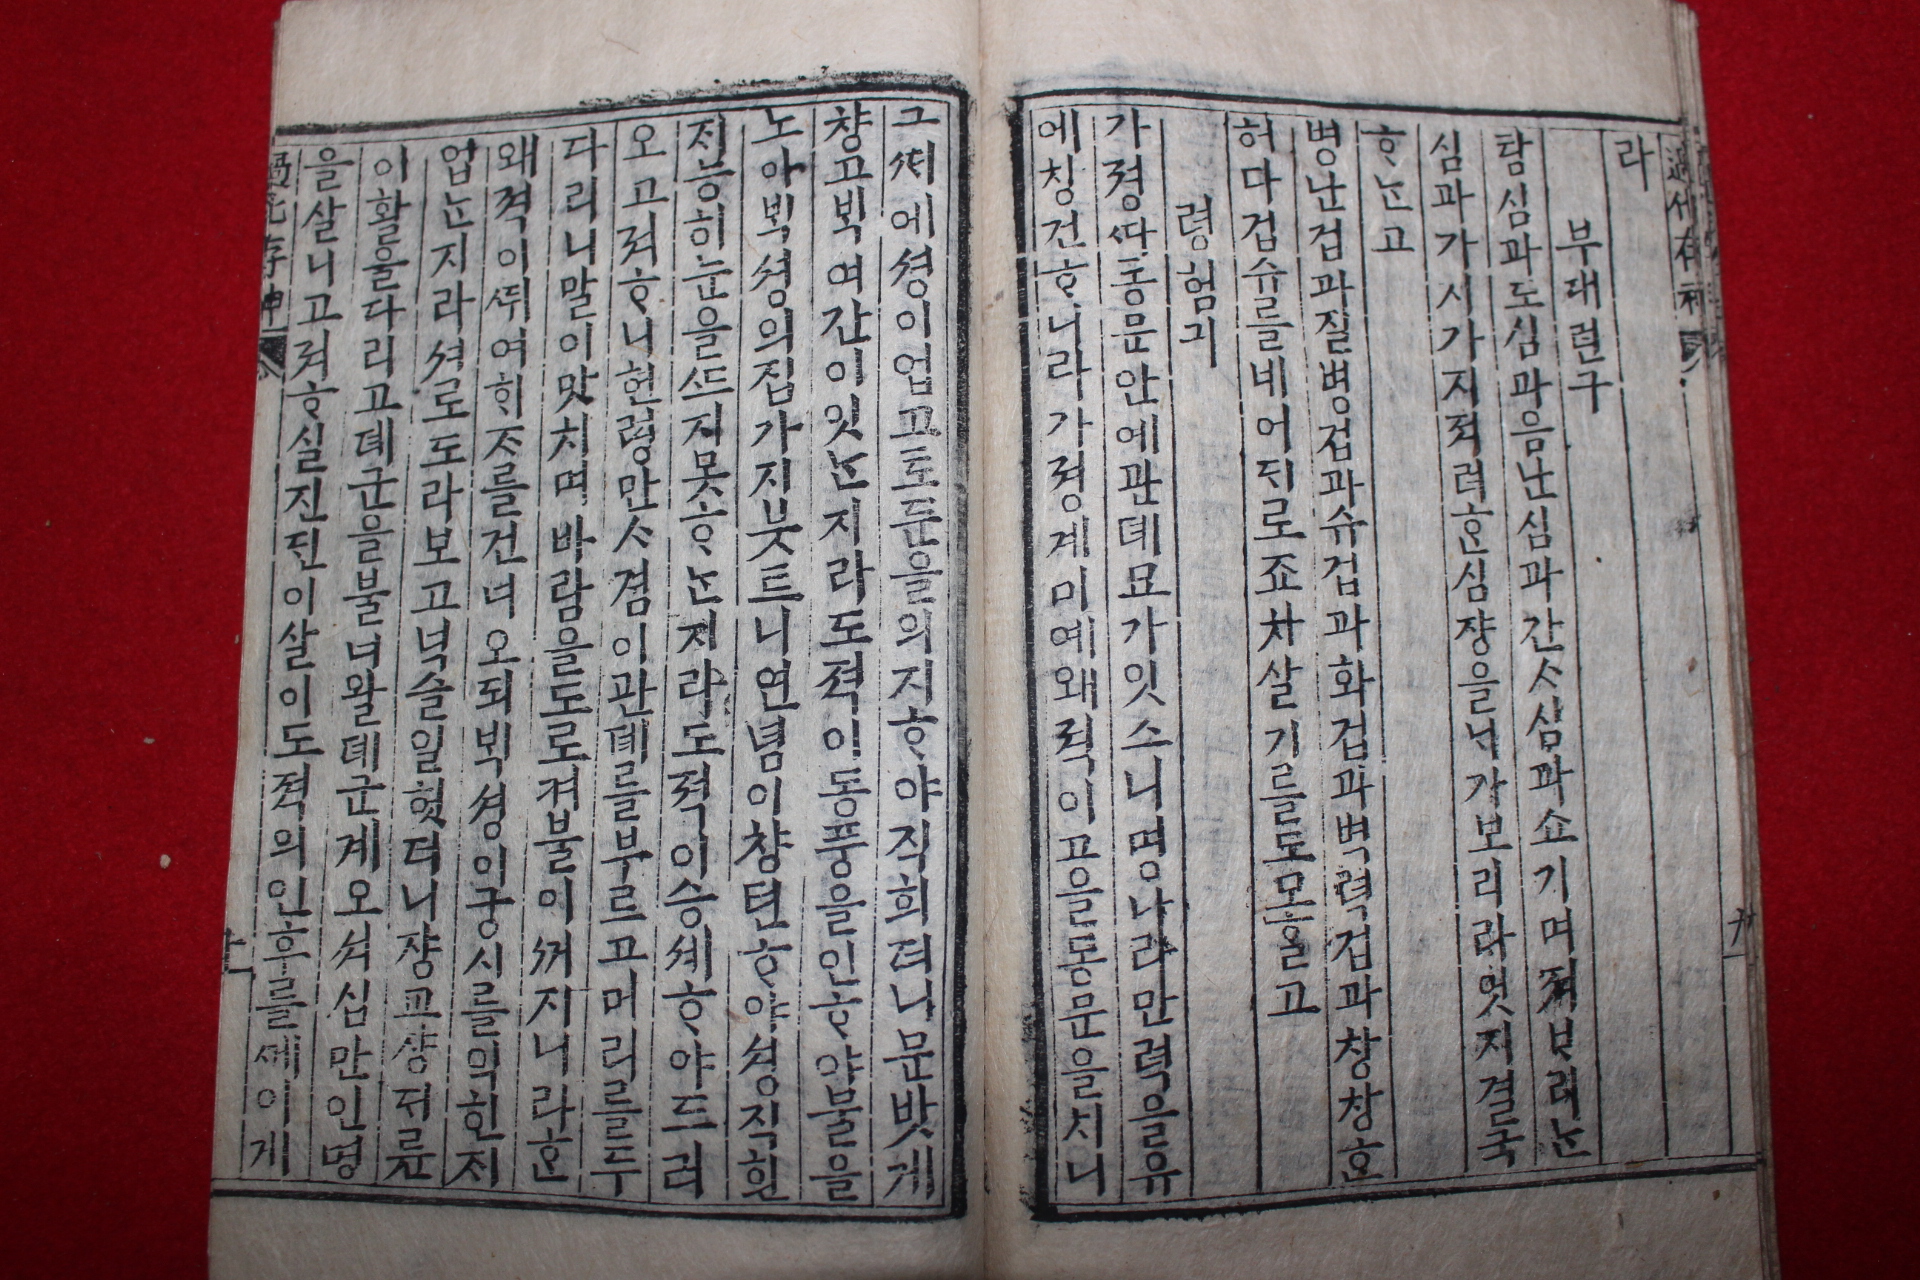 過化存神
라
부대련구
탐심과도심과음난심과간ᄉ심과쇼기며져ᄇ려ᄂᆞᆫ
심과가시가지져려ᄒᆞᆫ심쟝을녀가보리라엇지결국
ᄒᆞᄂᆞᆫ고
병난겁과질병겁과슈겁과화겁과벽력겁과창창ᄒᆞᆫ
허다겁슈를네어ᄃᆡ로죠차살기를도모ᄒᆞᆯ고
령험긔
가졍ᄯᅡ동문안에관뎨묘가잇스니명나라만력을유
에창건ᄒᆞ니라가졍계미예왜젹이고을동문을치니
그ᄯᅢ에셩이업고토둔을의지ᄒᆞ야직희더니문밧게
챵고ᄇᆡᆨ여간이잇ᄂᆞᆫ지라도젹이동풍을인ᄒᆞ야불을
노아ᄇᆡᆨ셩의집가지븟트니연념이챵텬ᄒᆞ야셩직흰
ᄌᆞ능히눈을ᄯᅳ지못ᄒᆞᄂᆞᆫ지라도젹이승셰ᄒᆞ야드러
오고져ᄒᆞ니현령만ᄉ겸이관뎨를부르고머리를두
다리니말이맛치며바람을도로켜불이ᄭᅥ지니라ᄒᆞᆫ
왜젹이ᄯᅱ여ᄒᆡᄌᆞ를건너오되ᄇᆡᆨ셩이궁시를익힌지
업ᄂᆞᆫ지라셔로도라보고넉슬일헛더니쟝교쟝져륜
이활을다리고뎨군을불너왈뎨군계오셔십만인명
을살니고져ᄒᆞ실진ᄃᆡᆫ이살이도젹의인후를ᄭᅦ이게
過化存神